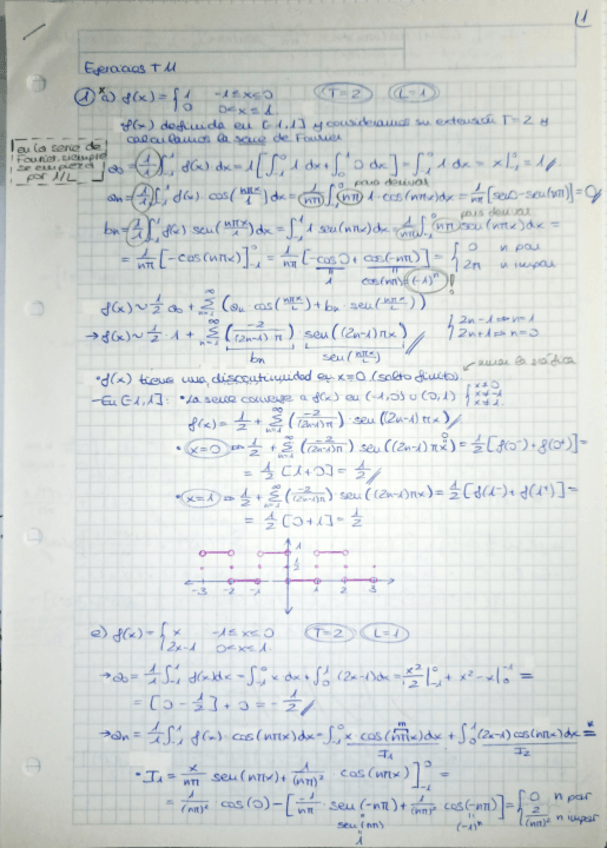 1
Ejercicios T 11
① a) f(x) = { 1 -1≤x≤0 T=2 L=1
0 0<x≤1
f(x) definida en [-1,1] y consideramos su extensión T=2 y
calculamos la serie de Fourier
en la serie de
Fourier siempre
se empieza
por 1/L
a₀ = 1/1 ∫₋₁¹ f(x) dx = 1 [∫₋₁⁰ 1 dx + ∫₀¹ 0 dx] = ∫₋₁⁰ 1 dx = x|₋₁⁰ = 1
para derivar
aₙ = 1/1 ∫₋₁¹ f(x) cos(nπx/1) dx = 1/nπ ∫₋₁⁰ nπ 1·cos(nπx) dx = 1/nπ [sen0 - sen(nπ)] = 0
para derivar
bₙ = 1/1 ∫₋₁¹ f(x) sen(nπx/1) dx = ∫₋₁⁰ 1 sen(nπx) dx = 1/nπ ∫₋₁⁰ nπ sen(nπx) dx =
= 1/nπ [-cos(nπx)]₋₁⁰ = 1/nπ [-cos0 + cos(-nπ)] = { 0 n par
1 cos(nπ) = (-1)ⁿ ! n impar
f(x) ~ 1/2 a₀ + Σₙ₌₁^∞ (aₙ cos(nπx/L) + bₙ sen(nπx/L))
→ f(x) ~ 1/2 · 1 + Σₙ₌₁^∞ (-2/((2n-1)π)) sen((2n-1)πx) { 2n-1 ⇒ n=1
bₙ sen(nπx/L) 2n+1 ⇒ n=0
• f(x) tiene una discontinuidad en x=0 (salto finito)
- En [-1,1]: • La serie converge a f(x) en (-1,0) ∪ (0,1) { x≠0
x≠-1
x≠1
f(x) = 1/2 + Σₙ₌₁^∞ (-2/((2n-1)π)) · sen((2n-1)πx)
• x=0 ⇒ 1/2 + Σₙ₌₁^∞ (-2/((2n-1)π)) sen((2n-1)πx) = 1/2 [f(0⁻) + f(0⁺)] =
= 1/2 [1+0] = 1/2
• x=1 ⇒ 1/2 + Σₙ₌₁^∞ (-2/((2n-1)π)) · sen((2n-1)πx) = 1/2 [f(1⁻) + f(1⁺)] =
= 1/2 [0+1] = 1/2
1
1/2
-3 -2 -1 1 2 3
e) f(x) = { x -1≤x≤0 T=2 L=1
2x-1 0<x≤1
→ a₀ = 1/1 ∫₋₁¹ f(x)dx = ∫₋₁⁰ x dx + ∫₀¹ (2x-1)dx = x²/2 |₋₁⁰ + x²-x|₀ =
= [0 - 1/2] + 0 = -1/2
→ aₙ = 1/1 ∫₋₁¹ f(x)·cos(nπx)dx = ∫₋₁⁰ x cos(nπx)dx + ∫₀¹ (2x-1)cos(nπx)dx =
I₁ I₂
• I₁ = x/nπ sen(nπx) + 1/(nπ)² cos(nπx) ]₋₁⁰ =
= 1/(nπ)² cos(0) - [-1/nπ · sen(-nπ) + 1/(nπ)² cos(-nπ)] = { 0 n par
2/(nπ)² n impar
sen(nπ) (-1)ⁿ